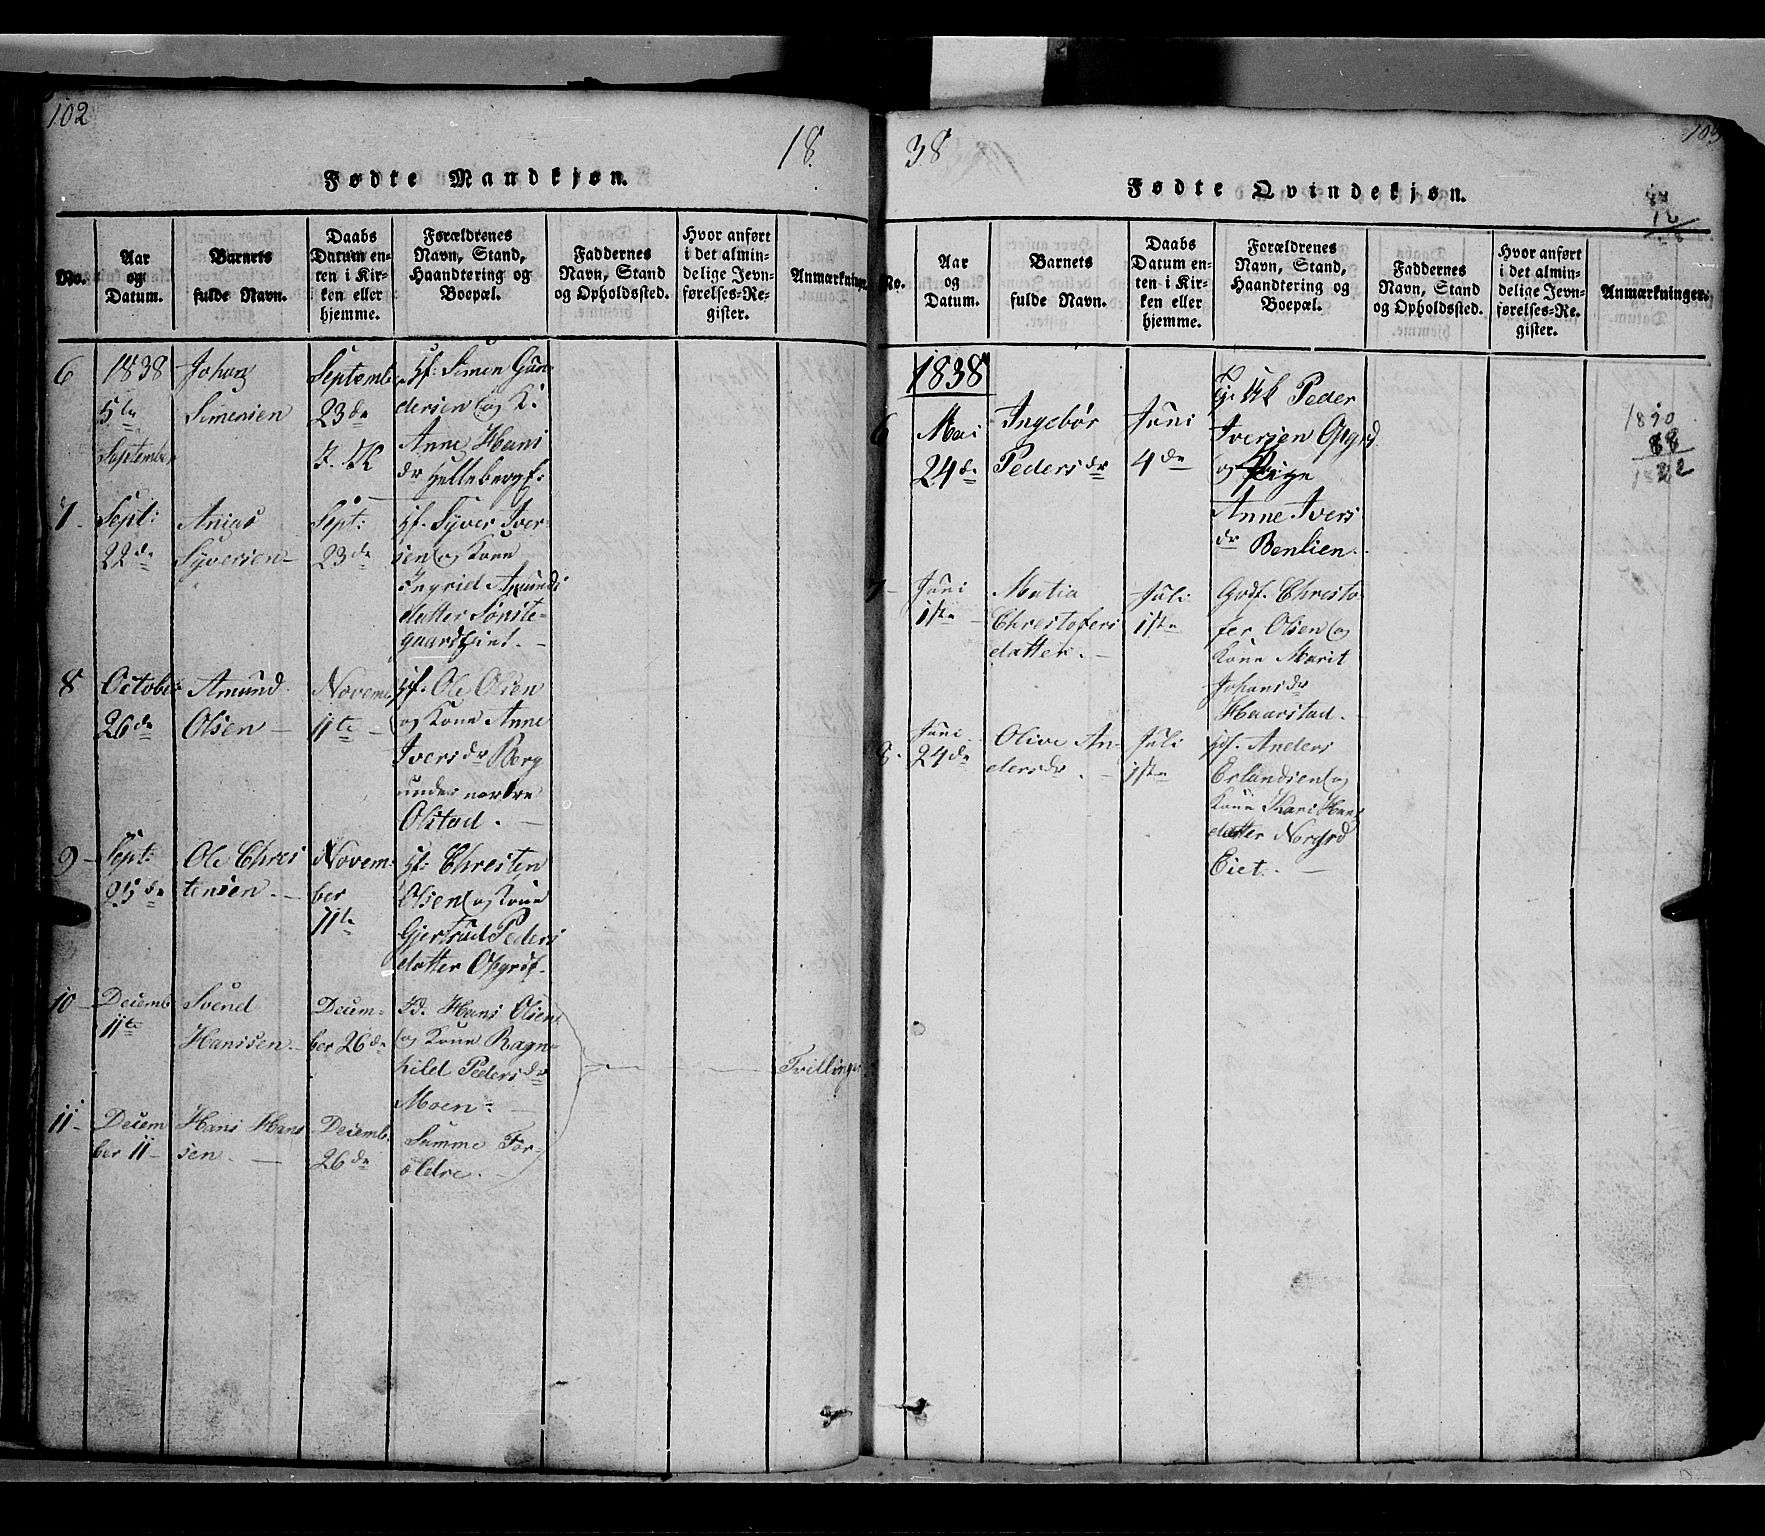 102
18
Fødte Mandkjøn.
No.
Aar
og
Datum.
Barnets
fulde Navn.
Daabs
Datum en-
ten i Kir-
ken eller
hjemme.
Forældrenes
Navn, Stand,
Haandtering og
Boepæl.
Faddernes
Navn, Stand
og Opholdssted.
Hvor anført
i det almin-
delige Jevn-
førelses-Re-
gister.
Anmærkninger.
6
1838
5te
September
Johan
Simensen
Septemb
23de
Hf. Simen Gun
dersen og K.
Anne Hans
dr Hellebergf:
7
Sept:
22de
Anias
Syversen
Sept:
23de
Hf. Syver Iver-
sen og Kone
Ingrid Amunds
datter Sønste-
gaards
8
October
26de
Amund
Olsen
Novemb
11te
Hf. Ole Olsen
og Kone Anne
Iversdr Berg
under nordre
Olstad.
9
Sept:
25de
Ole Chris
tensen
Novem-
ber
11te
Hf: Christen
Olsen og Kone
Gjertrud Peders
datter
10
Decemb
11te
Svend
Hanssen
Decem-
ber 26de
Hans Olsen
og Kone Ragn-
hild Pedersdr
Moen
Tvillinger
11
Decem
ber 11
Hans Hans
sen
Decemb.
26de
Samme For-
ældre.
38
103
Fødte Qvindekjøn.
No.
Aar
og
Datum.
Barnets
fulde Navn.
Daabs
Datum en-
ten i Kir-
ken eller
hjemme.
Forældrenes
Navn, Stand,
Haandtering og
Boepæl.
Faddernes
Navn, Stand
og Opholdssted.
Hvor anført
i det almin-
delige Jevn-
førelses-Re-
gister.
Anmærkninger.
1838
6
Mai
24de
Ingebør
Pedersdr
Juni
4de
Peder
Iversen Opgrd
og Pige
Anne Ivers
dr Benlien
7
Juni
1ste
Matia
Christofers
datter
Juli
1ste
Gdf. Christo
fer Olsen og
Kone Marit
Johansdr
Haarstad
8
Juni
24de
Olive An-
dersdr.
Juli
1ste
Hf. Anders
Erlandsen og
Kone Kari Hans
datter Norgrd
Eiet.